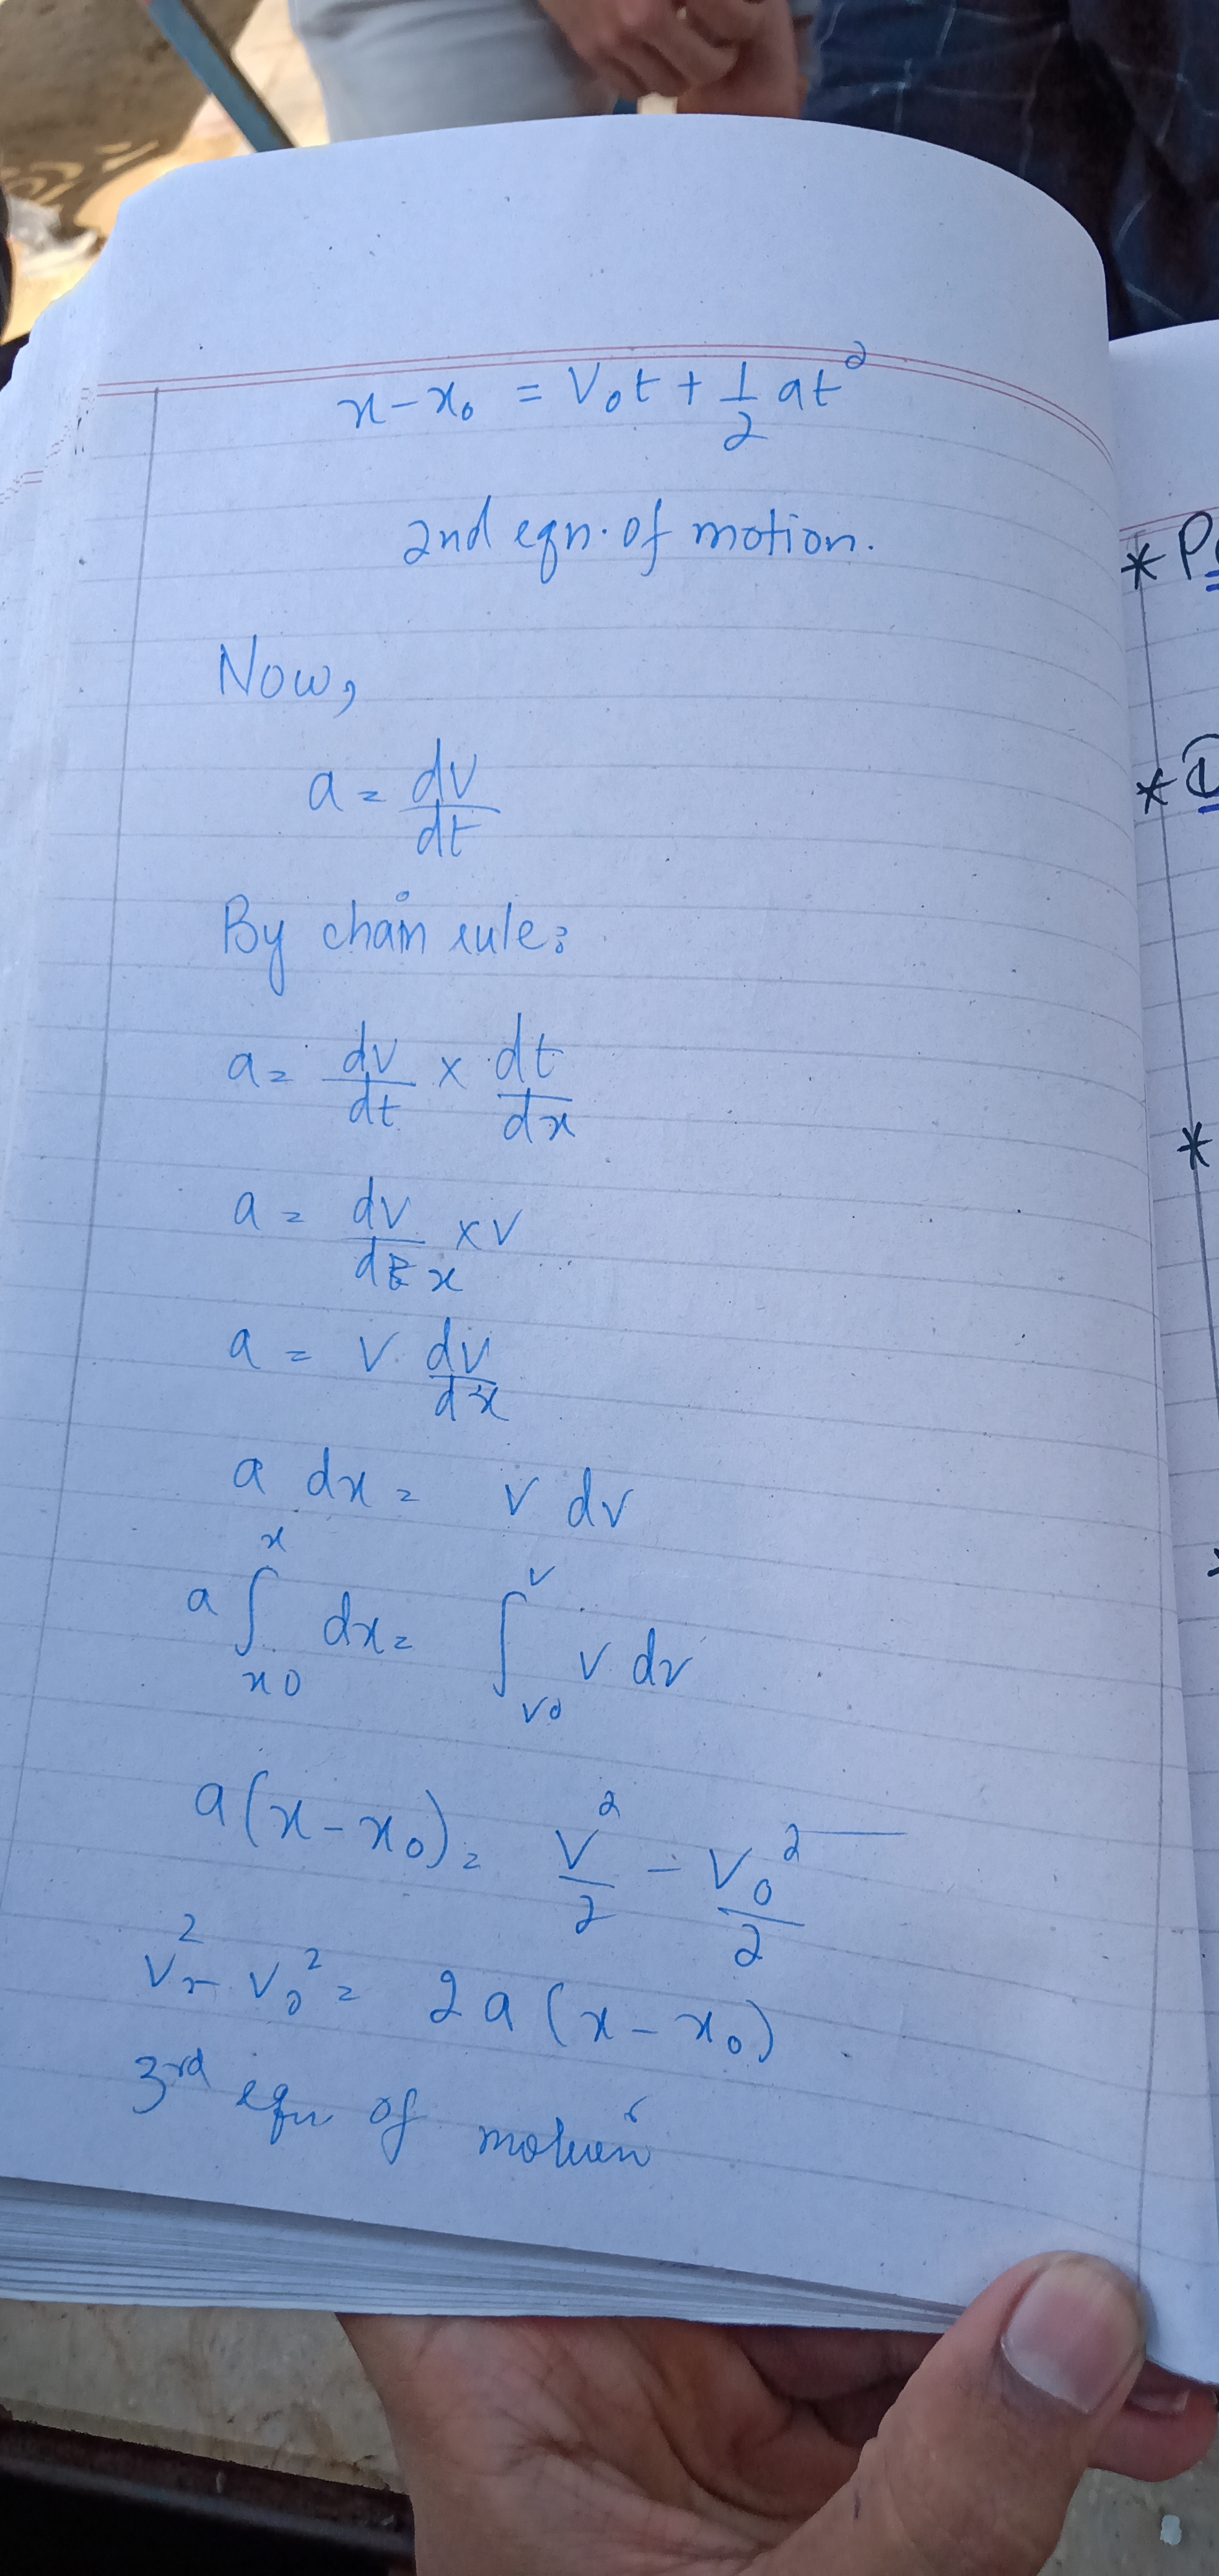 x-x₀ = V₀t + 1/2 at²
2nd eqn. of motion.
Now,
a = dv/dt
By chain rule:
a = dv/dt × dt/dx
a = dv/dx × v
a = v. dv/dx
a dx = v dv
a ∫_{x0}^{x} dx = ∫_{v0}^{v} v dv
a(x-x₀) = v²/2 - v₀²/2
v² - v₀² = 2a(x-x₀)
3rd eqn of motion
* P
* D
*